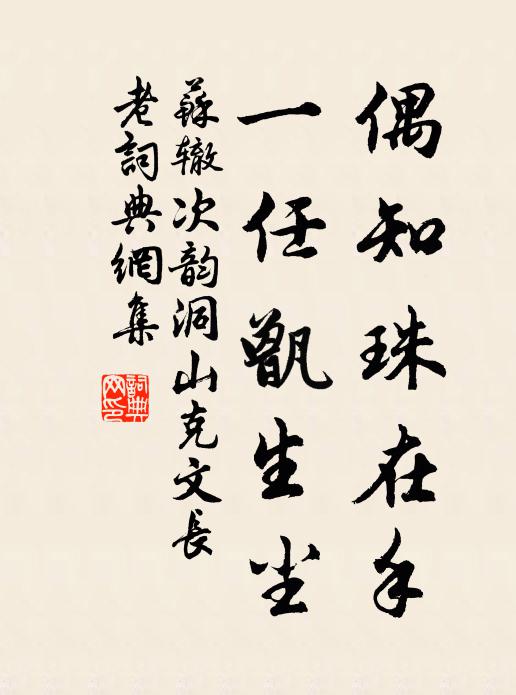 偶知珠在手
一任甑生尘
蘇辙次韵洞山克文長
老詞典網集
詞典
网印